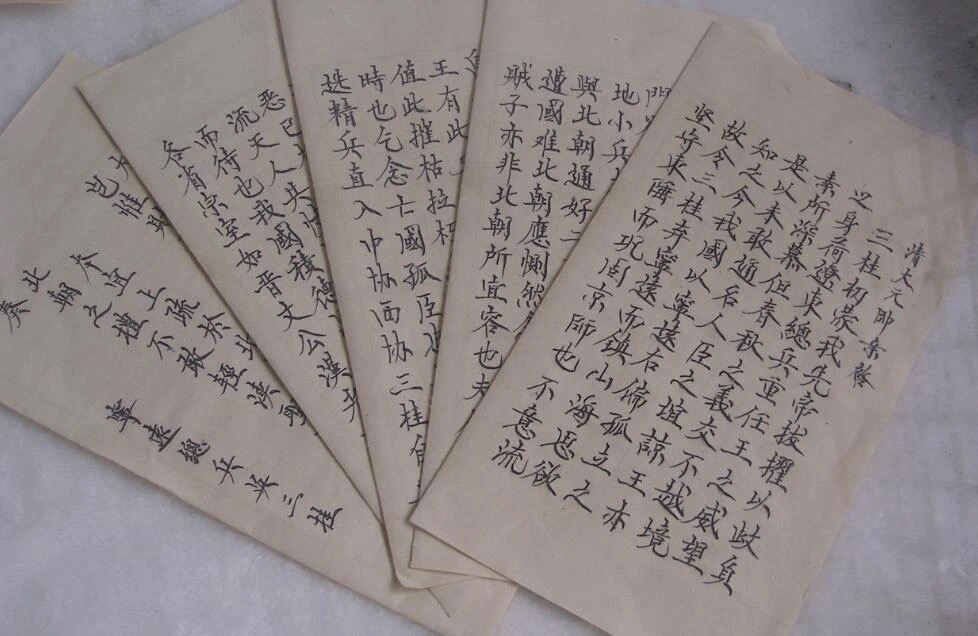 清大元帥亲啓
三桂初蒙我先帝拔擢以蚊負
之身荷遼東總兵重任王之威望
素所深慕但春秋之義交不越境
是以未敢通名人臣之誼諒王亦
知之今我國以寧遠右偏孤立之
故令三桂弃寧遠而鎮山海思欲
坚守東陲而巩固京師也不意流
地小兵
與北朝通好二
遭國难北朝應惻然
賊子亦非北朝所宜容也夫
王有此
值此摧枯拉朽
時也乞念亡國孤臣忠
选精兵直入中协西协三桂自
恶已
流天人共
而待也我國積德
各省宗室如晋文公漢
岂惟財
本宜上疏於北
北朝之禮不敢輕瀆
奏
寧遠總兵吳三桂